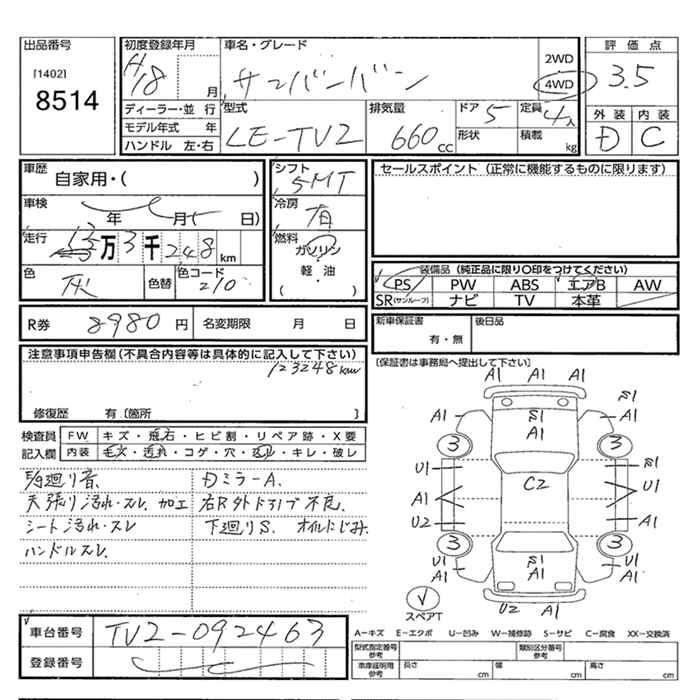 出品番号
[1402]
8514
初度登録年月
H18 月
車名・グレード
サンバーバン
2WD
4WD
評価点
3.5
ディーラー・並行
モデル年式 年
ハンドル 左・右
型式
LE-TV2
排気量
660 CC
ドア 5
形状
定員 4人
積載 kg
外装 内装
D C
車歴
自家用・( )
車検
年 月( 日)
走行
万3千248 km
色
灰
色替
色コード
210
シフト
5MT
冷房
有
燃料
ガソリン
軽・油
( )
セールスポイント (正常に機能するものに限ります)
装備品 (純正品に限り○印をつけてください)
PS PW ABS エアB AW
SR(サンルーフ) ナビ TV 本革
R券 8980 円 名変期限 月 日
新車保証書
有・無
後日品
注意事項申告欄(不具合内容等は具体的に記入して下さい)
123248km
修復歴 有〔箇所 〕
〔保証書は事務局へ提出して下さい〕
検査員
記入欄
FW キズ・飛石・ヒビ割・リペア跡・X要
内装 毛穴・汚れ・コゲ・穴・スレ・キレ・破レ
天張り汚れ・スレ. 加エ
シート汚れ・スレ
ハンドルスレ.
DミラーA.
右R外ドラノブ不良.
下廻りS. オイルにじみ.
A1 A1 A1
S1
A1 S1 A1 A1
3 3
U1 C2 S1
A1 U1
U2 A1
3 3
U1 S1 U1
A1 A1 A1
スペアT
U2 A1
車台番号 TV2-092463
登録番号
A－キズ E－エクボ U－凹み W－補修跡 S－サビ C－腐食 XX－交換済
型式指定番号
参考
類別区分番号
参考
車庫証明用
参考
長さ cm 幅 cm 高さ cm